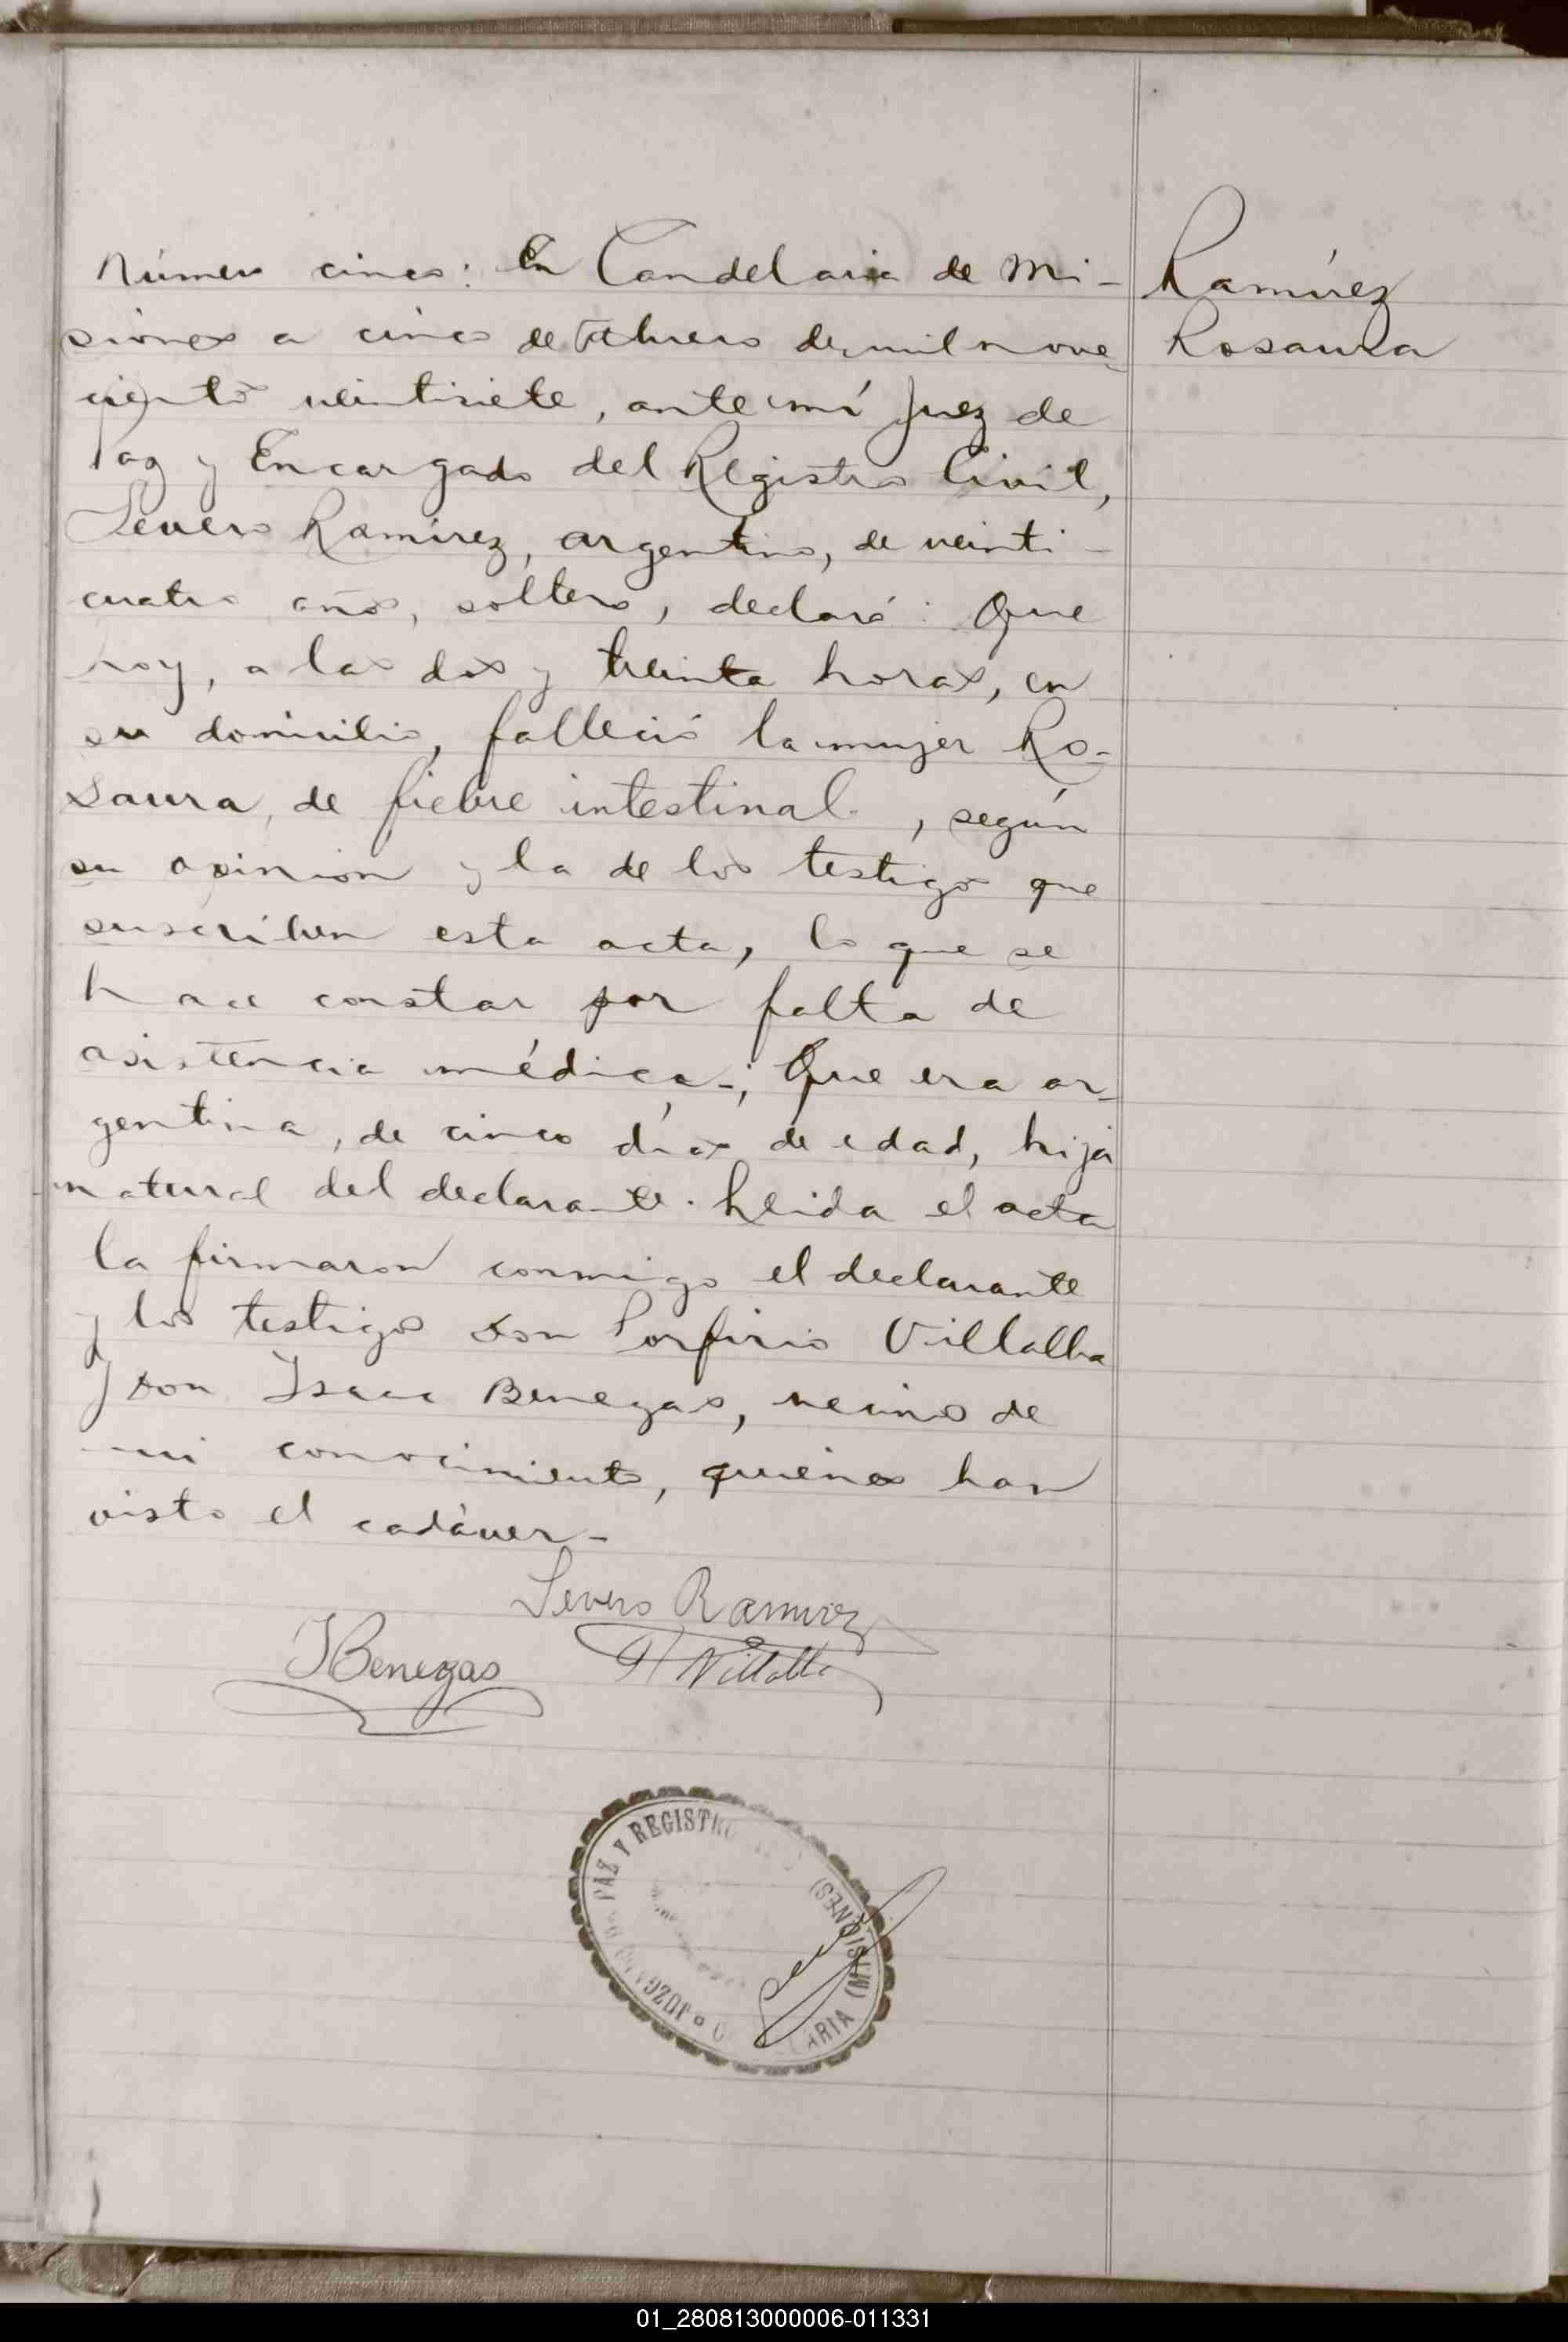 Número cinco: En Candelaria de Mi-
siones a cinco de Febrero de mil nove
ciento veintisiete, ante mí Juez de
Paz y Encargado del Registro Civil,
Severo Ramírez, argentino, de veinti-
cuatro años, soltero, declaró: Que
hoy, a las dos y treinta horas, en
su domicilio, falleció la mujer Ro-
saura, de fiebre intestinal, según
su opinión y la de los testigos que
suscriben esta acta, lo que se
hace constar por falta de
asistencia médica-; Que era ar-
gentina, de cinco días de edad, hija
natural del declarante. Leida el acta
la firmaron conmigo el declarante
y los testigos don Porfirio Villalba
y don Isaac Benegas, vecinos de
mi conocimiento, quienes han
visto el cadáver-
Ramírez
Rosaura
Severo Ramirez
IBenegas
P Villalba
JUZGADO DE PAZ Y REGISTRO
ARIA (MISIONES)
01_280813000006-011331